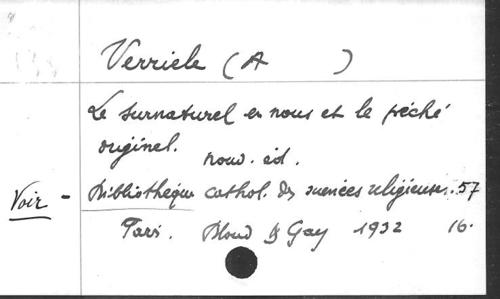 Verriele (A )
Le surnaturel en nous et le péché
originel. nouv. éd.
Voir - Bibliothèque cathol. des sciences religieuses. 57
Paris. Bloud & Gay 1932 16.